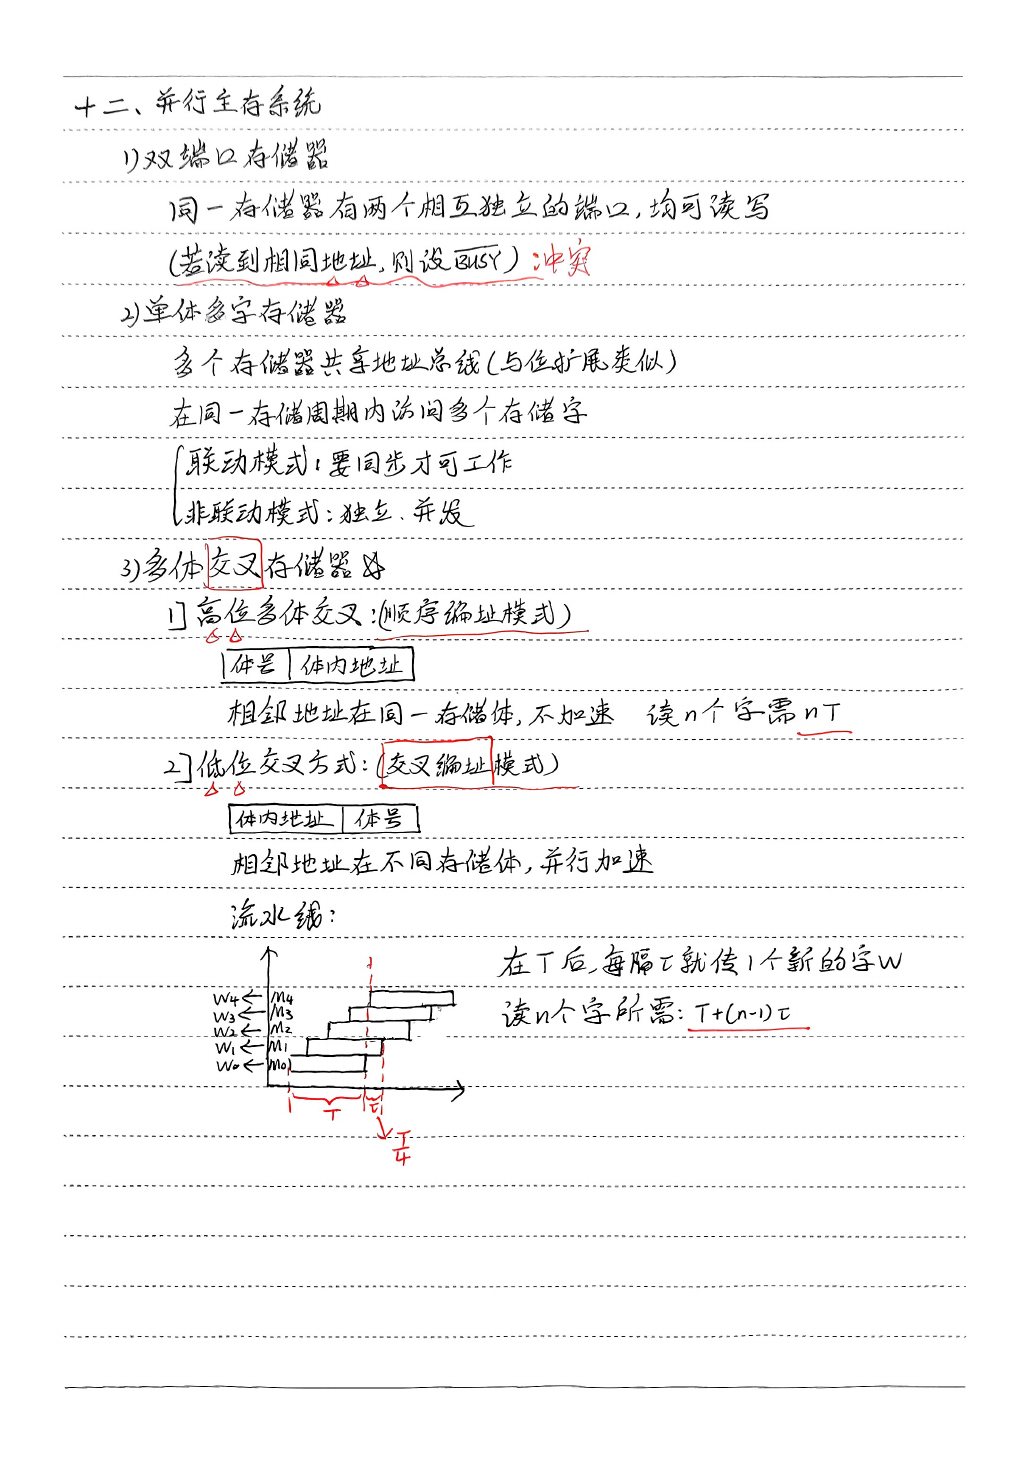 十二、并行主存系统
1)双端口存储器
同一存储器有两个相互独立的端口,均可读写
(若读到相同地址,则设BUSY):冲突
2)单体多字存储器
多个存储器共享地址总线(与位扩展类似)
在同一存储周期内访问多个存储字
联动模式:要同步才可工作
非联动模式:独立、并发
3)多体交叉存储器☆
1]高位多体交叉:(顺序编址模式)
体号 体内地址
相邻地址在同一存储体,不加速 读n个字需nT
2]低位交叉方式:(交叉编址模式)
体内地址 体号
相邻地址在不同存储体,并行加速
流水线:
在T后,每隔τ就传1个新的字W
读n个字所需:T+(n-1)τ
W4←M4
W3←M3
W2←M2
W1←M1
W0←M0
T τ
T/4